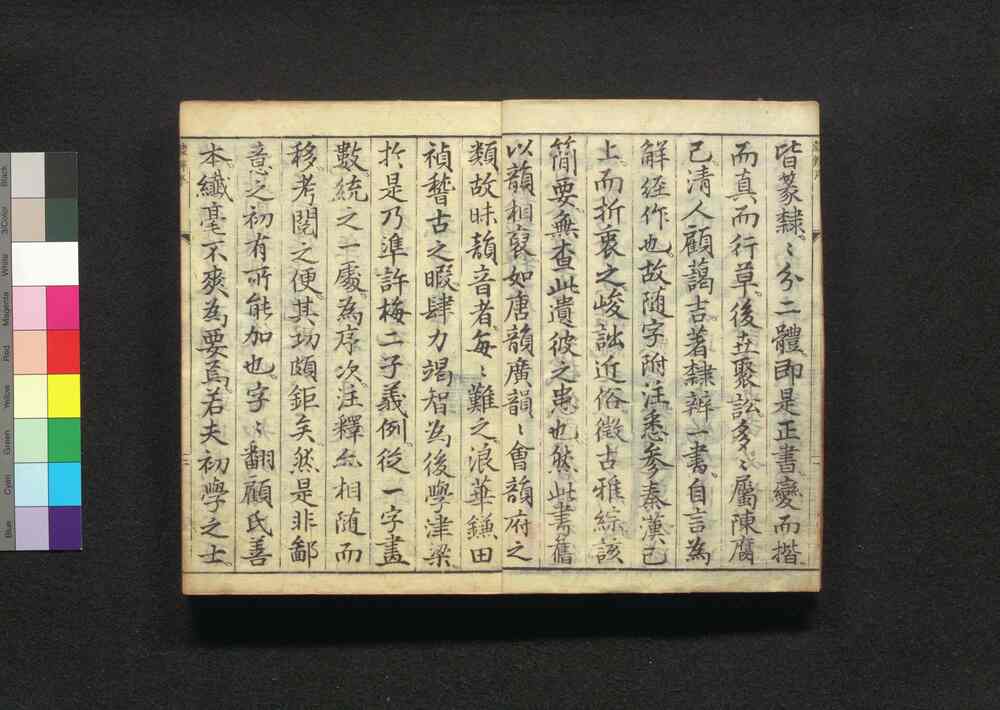 皆篆隸〻分二體即是正書變而楷
而真而行草後世聚訟多〻屬陳腐
已清人顧藹吉著隸辨一書自言為
解經作也故隨字附注悉參秦漢已
上而折衷之峻詘近俗徵古雅綜該
簡要無查此遺彼之患也然此書舊
以韻相裒如唐韻廣韻〻會韻府之
類故昧韻音者每〻難之浪華鎌田
禎嵇古之暇肆力竭智為後學津梁
於是乃準許梅二子義例從一字畫
數統之一處為序次注釋亦相隨而
移考閱之便其功頗鉅矣然是非鄙
意之初有所能加也字〻翻顧氏善
本纖毫不爽為要焉若夫初學之士
Black
3/Color
White
Magenta
Red
Yellow
Green
Cyan
Blue